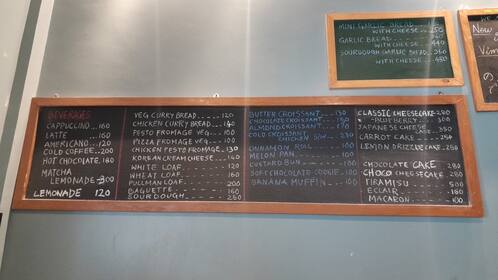 MINI GARLIC BREAD
WITH CHEESE 250
GARLIC BREAD
WITH CHEESE 440
SOURDOUGH GARLIC BREAD 360
WITH CHEESE 480
New
Vim
BEVERAGES
CAPPUCCINO 160
LATTE 160
AMERICANO 120
COLD COFFEE 200
HOT CHOCOLATE 180
MATCHA
LEMONADE 300
LEMONADE 120
VEG CURRY BREAD 120
CHICKEN CURRY BREAD 140
PESTO FROMAGE VEG 100
PIZZA FROMAGE VEG
CHICKEN PESTO FROMAGE 130
KOREAN CREAM CHEESE 140
WHITE LOAF 120
WHEAT LOAF 160
PULLMAN LOAF 200
BAGUETTE 160
SOURDOUGH 280
BUTTER CROISSANT 130
CHOCOLATE CROISSANT
ALMOND CROISSANT
COLD CROISSANT
CHICKEN
CINNAMON ROLL 100
MELON PAN 100
CUSTARD BUN 100
SOFT CHOCOLATE COOKIE 100
BANANA MUFFIN 100
CLASSIC CHEESECAKE 280
BLUEBERRY
JAPANESE CHEESE CAKE
CARROT CAKE 250
LEMON DRIZZLE CAKE 250
CHOCOLATE CAKE 280
CHOCO CHEESECAKE 280
TIRAMISU 300
ECLAIR 180
MACARON 100